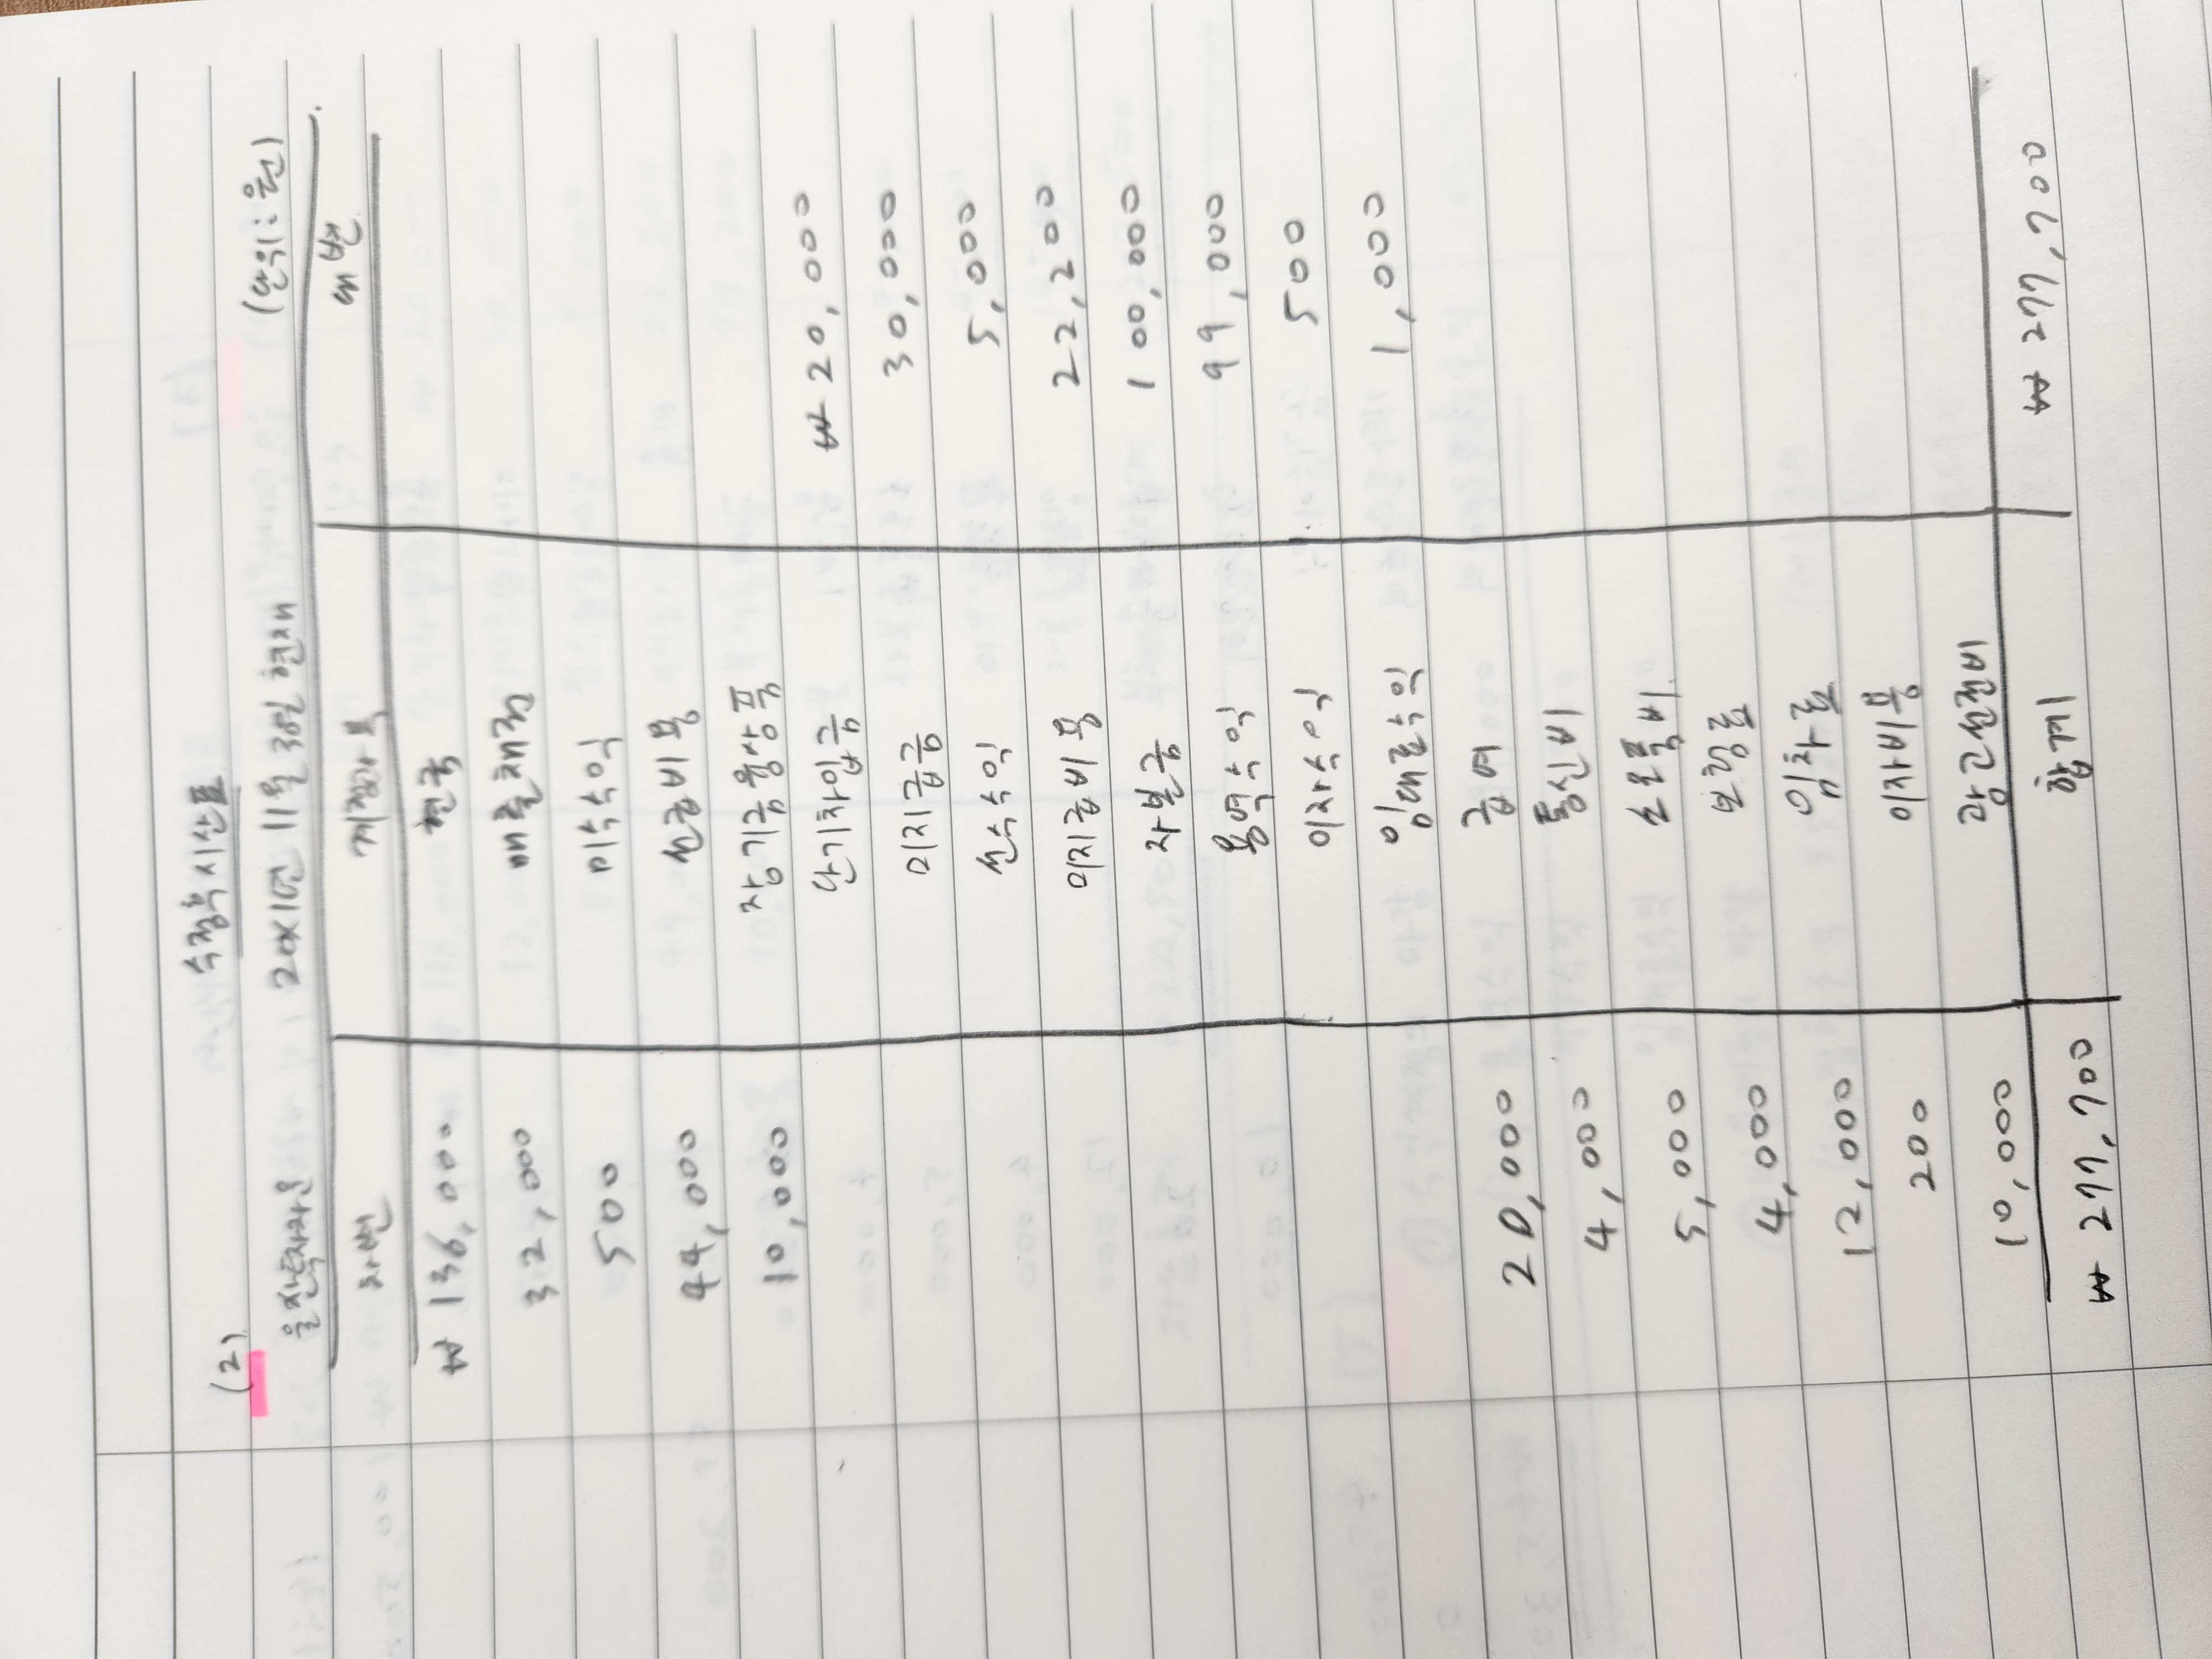 (2) 수정후시산표
을지투자자문 20X1년 11월 30일 현재 (단위: 원)
차변 계정과목 대변
₩ 136,000 현금
32,000 매출채권
500 미수수익
44,000 선급비용
10,000 장기금융상품
단기차입금 ₩ 20,000
미지급금 30,000
선수수익 5,000
미지급비용 22,200
자본금 100,000
용역수익 99,000
이자수익 500
임대료수익 1,000
20,000 급여
4,000 통신비
5,000 소모품비
4,000 보험료
12,000 임차료
200 이자비용
10,000 광고선전비
₩ 277,700 합계 ₩ 277,700